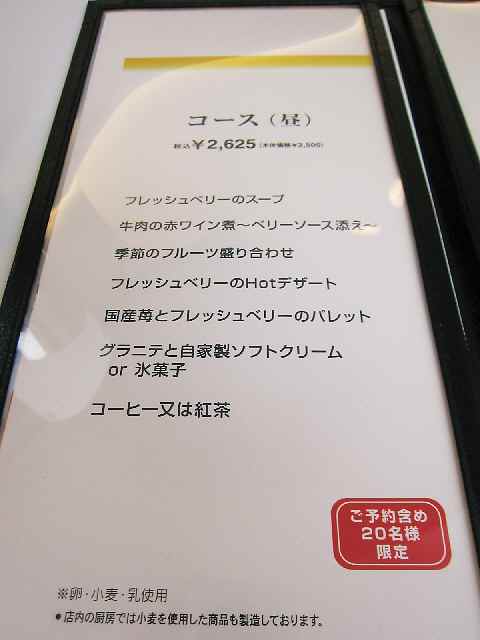 コース（昼）
税込￥2,625（本体価格￥2,500）
フレッシュベリーのスープ
牛肉の赤ワイン煮～ベリーソース添え～
季節のフルーツ盛り合わせ
フレッシュベリーのHotデザート
国産苺とフレッシュベリーのパレット
グラニテと自家製ソフトクリーム
or 氷菓子
コーヒー又は紅茶
ご予約含め
20名様
限定
※卵・小麦・乳使用
●店内の厨房では小麦を使用した商品も製造しております。